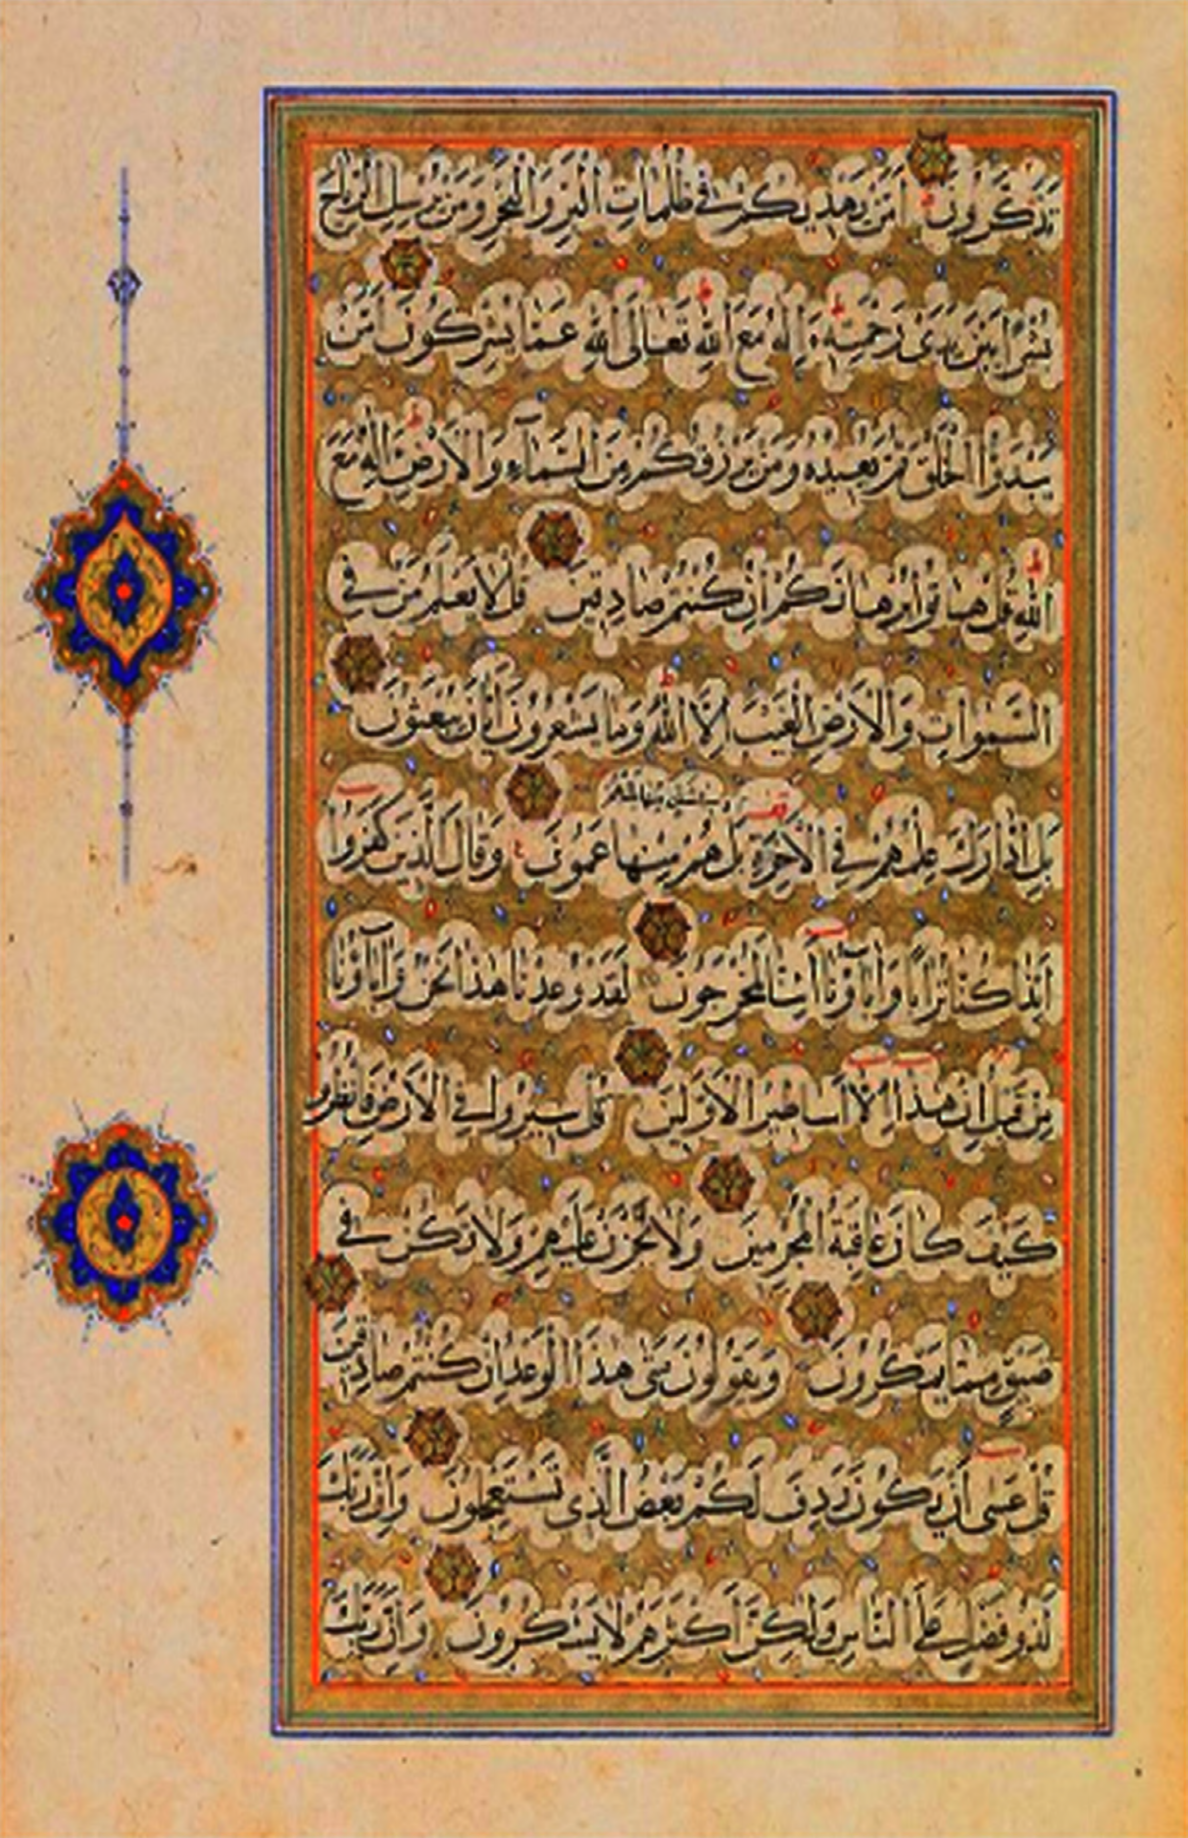 تَذَكَّرُونَ اَمَّنْ يَهْدِيكُمْ فِي ظُلُمَاتِ الْبَرِّ وَالْبَحْرِ وَمَنْ يُرْسِلُ الرِّيَاحَ
بُشْرًا بَيْنَ يَدَىْ رَحْمَتِهِ ءَاِلَهٌ مَعَ اللهِ تَعَالَى اللهُ عَمَّا يُشْرِكُونَ اَمَّنْ
يَبْدَؤُا الْخَلْقَ ثُمَّ يُعِيدُهُ وَمَنْ يَرْزُقُكُمْ مِنَ السَّمَآءِ وَالْاَرْضِ ءَاِلَهٌ مَعَ
اللهِ قُلْ هَاتُوا بُرْهَانَكُمْ اِنْ كُنْتُمْ صَادِقِينَ قُلْ لَا يَعْلَمُ مَنْ فِي
السَّمَوَاتِ وَالْاَرْضِ الْغَيْبَ اِلَّا اللهُ وَمَا يَشْعُرُونَ اَيَّانَ يُبْعَثُونَ
بَلِ ادَّارَكَ عِلْمُهُمْ فِي الْاٰخِرَةِ بَلْ هُمْ فِي شَكٍّ مِنْهَا بَلْ هُمْ مِنْهَا عَمُونَ وَقَالَ الَّذِينَ كَفَرُوا
اَئِذَا كُنَّا تُرَابًا وَاٰبَآؤُنَا اَئِنَّا لَمُخْرَجُونَ لَقَدْ وُعِدْنَا هَذَا نَحْنُ وَاٰبَآؤُنَا
مِنْ قَبْلُ اِنْ هَذَا اِلَّا اَسَاطِيرُ الْاَوَّلِينَ قُلْ سِيرُوا فِي الْاَرْضِ فَانْظُرُوا
كَيْفَ كَانَ عَاقِبَةُ الْمُجْرِمِينَ وَلَا تَحْزَنْ عَلَيْهِمْ وَلَا تَكُنْ فِي
ضَيْقٍ مِمَّا يَمْكُرُونَ وَيَقُولُونَ مَتَى هَذَا الْوَعْدُ اِنْ كُنْتُمْ صَادِقِينَ
قُلْ عَسَى اَنْ يَكُونَ رَدِفَ لَكُمْ بَعْضُ الَّذِى تَسْتَعْجِلُونَ وَاِنَّ رَبَّكَ
لَذُو فَضْلٍ عَلَى النَّاسِ وَلَكِنَّ اَكْثَرَهُمْ لَا يَشْكُرُونَ وَاِنَّ رَبَّكَ